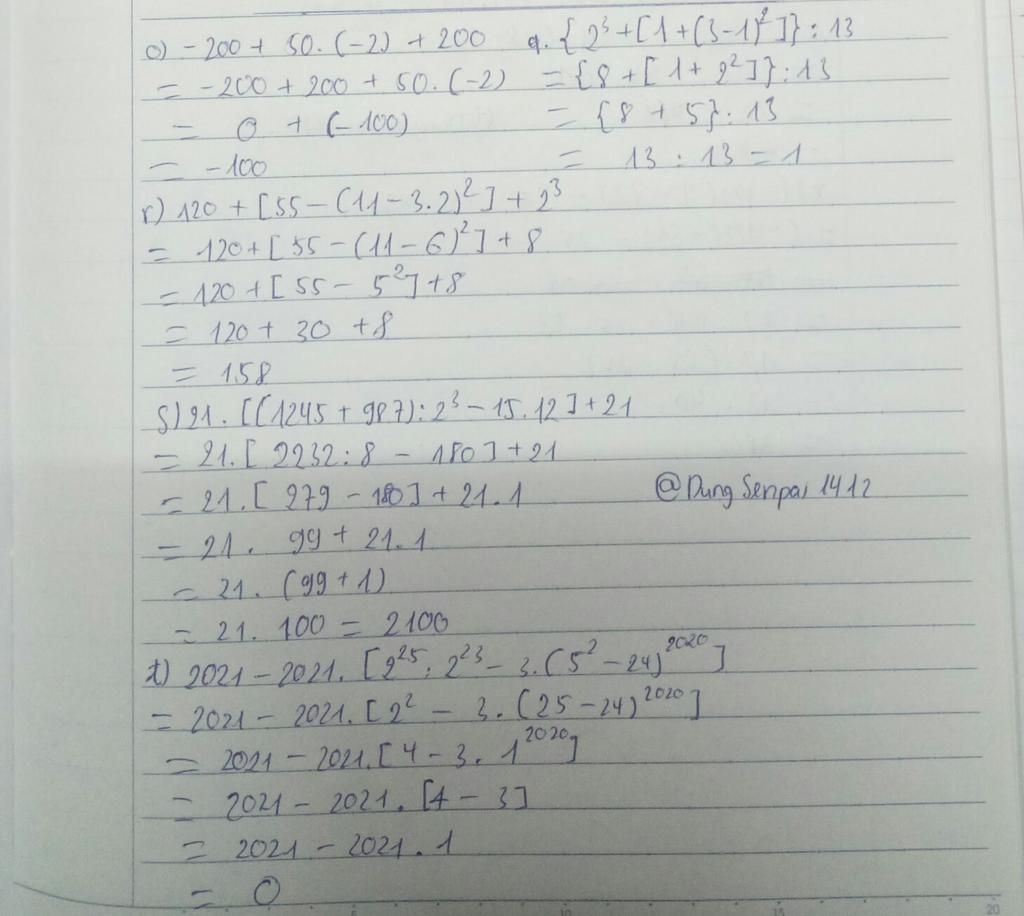 o) -200 + 50.(-2) + 200
= -200 + 200 + 50.(-2)
= 0 + (-100)
= -100
q. {2³ + [1 + (3-1)²]} : 13
= {8 + [1 + 2²]} : 13
= {8 + 5} : 13
= 13 : 13 = 1
r) 120 + [55 - (11 - 3.2)²] + 2³
= 120 + [55 - (11 - 6)²] + 8
= 120 + [55 - 5²] + 8
= 120 + 30 + 8
= 158
s) 21.[(1245 + 987) : 2³ - 15.12] + 21
= 21.[2232 : 8 - 180] + 21
= 21.[279 - 180] + 21.1
@Dung Senpai 1412
= 21. 99 + 21.1
= 21. (99 + 1)
= 21. 100 = 2100
t) 2021 - 2021.[2²⁵ : 2²³ - 3.(5² - 24)²⁰²⁰]
= 2021 - 2021.[2² - 3.(25 - 24)²⁰²⁰]
= 2021 - 2021.[4 - 3. 1²⁰²⁰]
= 2021 - 2021.[4 - 3]
= 2021 - 2021.1
= 0